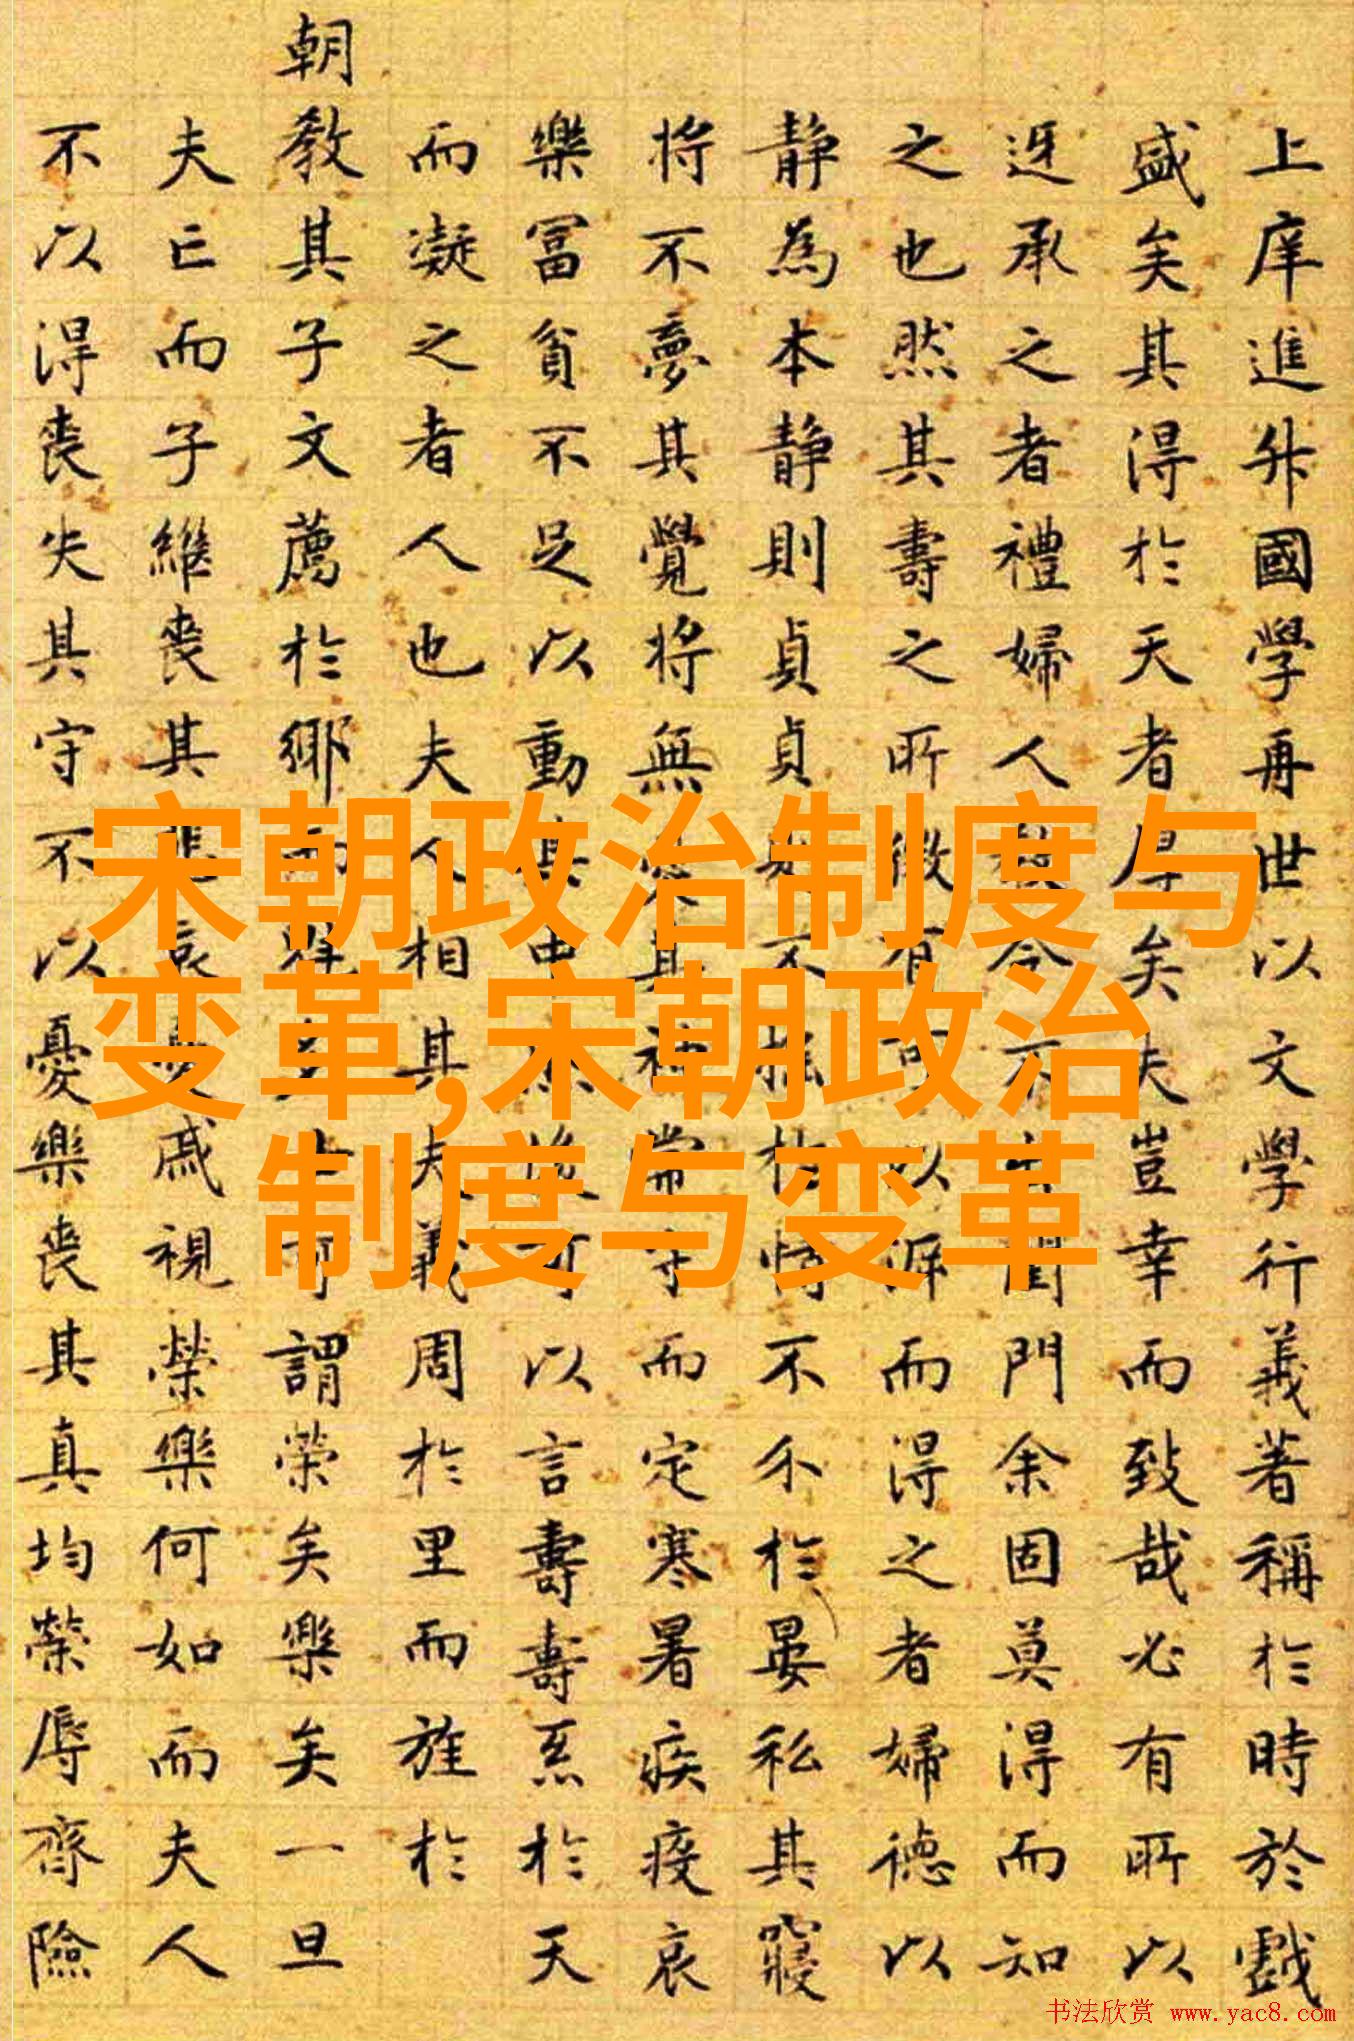 上庠進升國學再世以文學行義著稱於時於戲
盛矣其得於天者厚矣夫豈幸而致哉必有所以
迓承之者禮婦人教令不出閨門余固莫得而知
之也然其壽之所徵有可以泝而得之者婦德以
静為本静則貞貞則不搖於情不介於晏私其寢
將不夢其覺將無憂其神常守而定寒暑疾疫哀
樂冨貧不足以動其中然後可以言壽壽系於天
而凝之者人也夫人相其夫義周於里而施於
朝教其子文薦於鄉而得可謂榮矣樂矣一旦
夫亡而子継喪其悲哀戚視榮樂何如而夫人
不以得喪失其守不以憂樂喪其真均榮辱齊險
宋朝政治制度与
变革,宋朝政治
制度与变革
书法欣赏 www.yac8.com